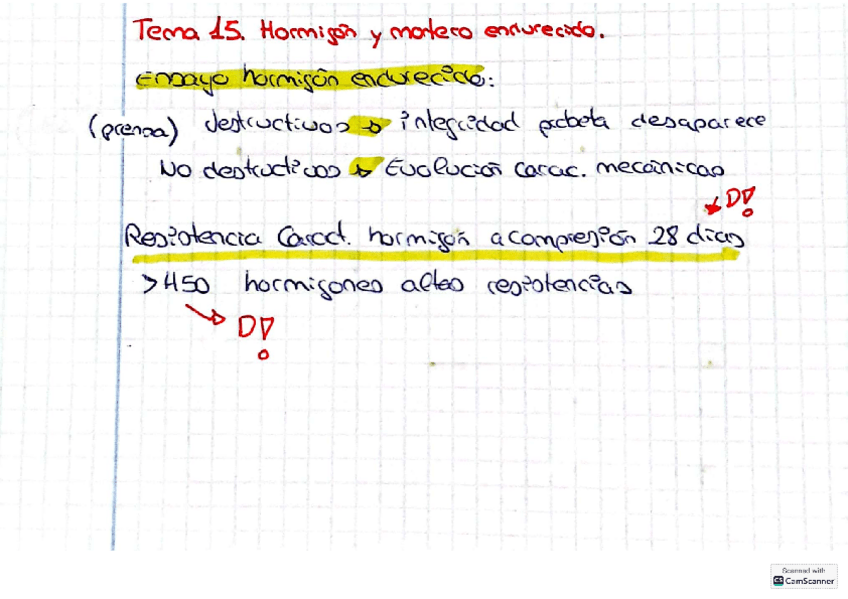 Tema 15. Hormigón y mortero endurecido.
Ensayo hormigón endurecido:
(prensa) destructivos → integridad probeta desaparece
No destructivos → Evolución carac. mecánicas
D!
Resistencia Caract. hormigón a compresión 28 días
>450 hormigones altas resistencias
Scanned with
CS CamScanner